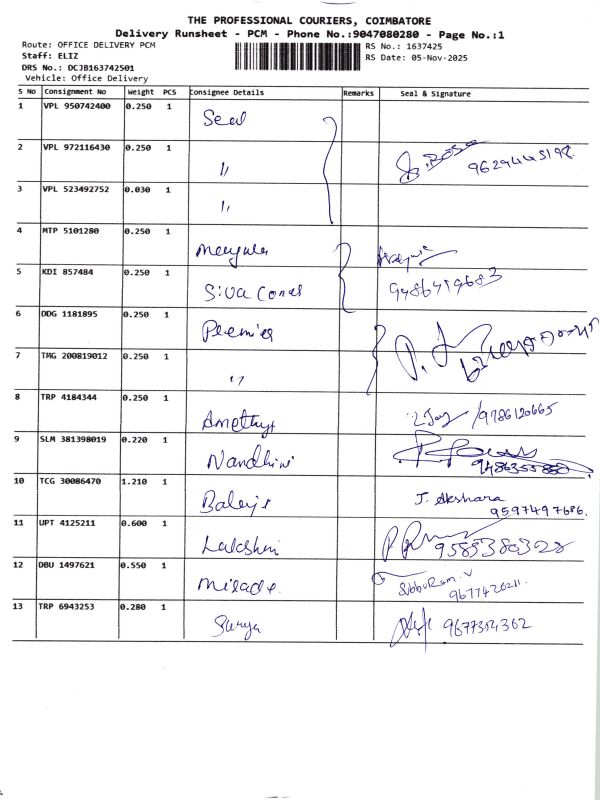 THE PROFESSIONAL COURIERS, COIMBATORE
Delivery Runsheet - PCM - Phone No.:9047080280 - Page No.:1
Route: OFFICE DELIVERY PCM
Staff: ELIZ
DRS No.: DCJB163742501
Vehicle: Office Delivery
RS No.: 1637425
RS Date: 05-Nov-2025
S No Consignment No Weight PCS Consignee Details Remarks Seal & Signature
1 VPL 950742400 0.250 1 Seal
2 VPL 972116430 0.250 1 〃 9629445198
3 VPL 523492752 0.030 1 〃
4 MTP 5101280 0.250 1
5 KDI 857484 0.250 1 Siva
6 DDG 1181895 0.250 1 Premier
7 TMG 200819012 0.250 1 〃
8 TRP 4184344 0.250 1 Amethyst 9786120665
9 SLM 381398019 0.220 1 Nandhini
10 TCG 30086470 1.210 1 Balaji J. Akshara
9597497686.
11 UPT 4125211 0.600 1 Lakshmi
12 DBU 1497621 0.550 1
13 TRP 6943253 0.280 1 Surya